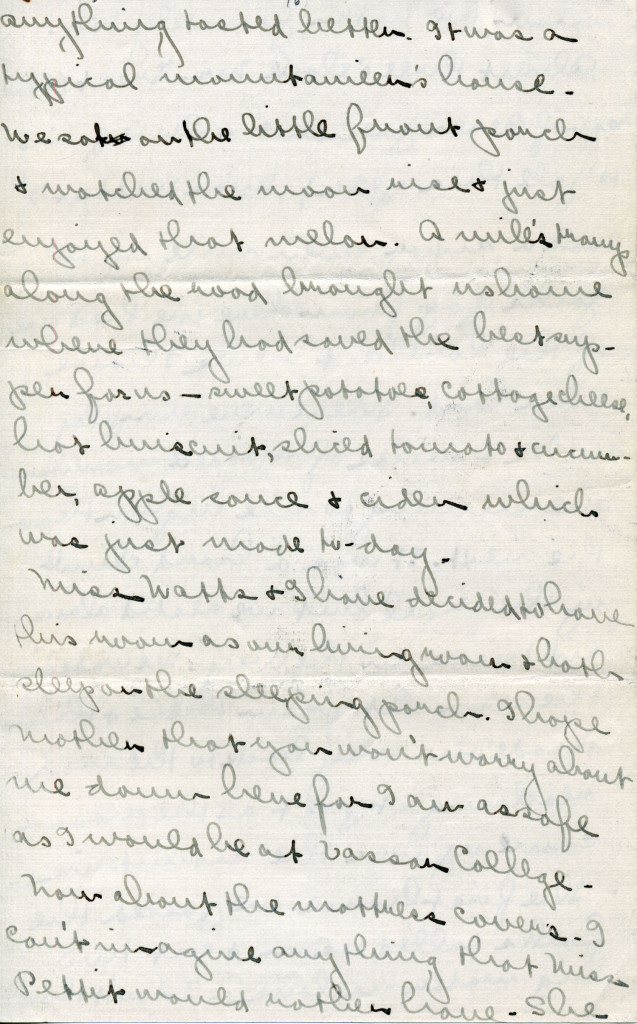 anything tasted better. It was a
typical mountaineer's house.
We sat on the little front porch
& watched the moon rise & just
enjoyed that melon. A mile's tramp
along the road brought us home
where they had saved the best sup-
per for us – sweet potatoes, cottage cheese,
hot biuscuit, sliced tomato & cucum-
ber, apple sauce & cider which
was just made to-day.
Miss Watts & I have decided to have
this room as our living room & both
sleep on the sleeping porch. I hope
Mother that you won't worry about
me down here for I am as safe
as I would be at Vassar College.
Now about the mattress covers. I
can't imagine anything that Miss
Pettit would rather have. She